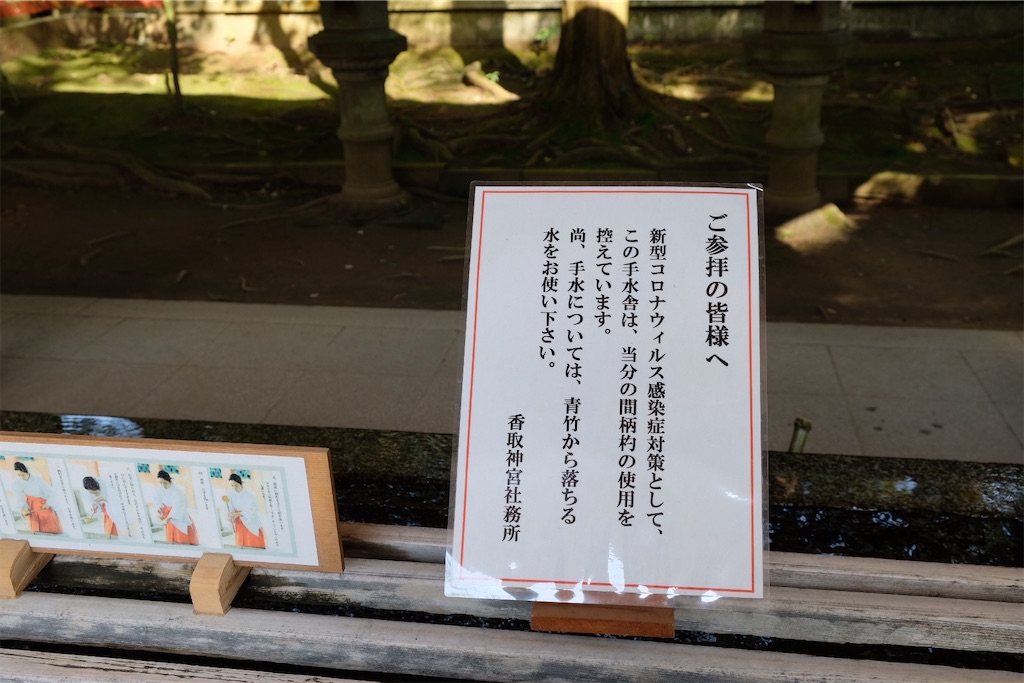 ご参拝の皆様へ
新型コロナウィルス感染症対策として、
この手水舎は、当分の間柄杓の使用を
控えています。
尚、手水については、青竹から落ちる
水をお使い下さい。
香取神宮社務所